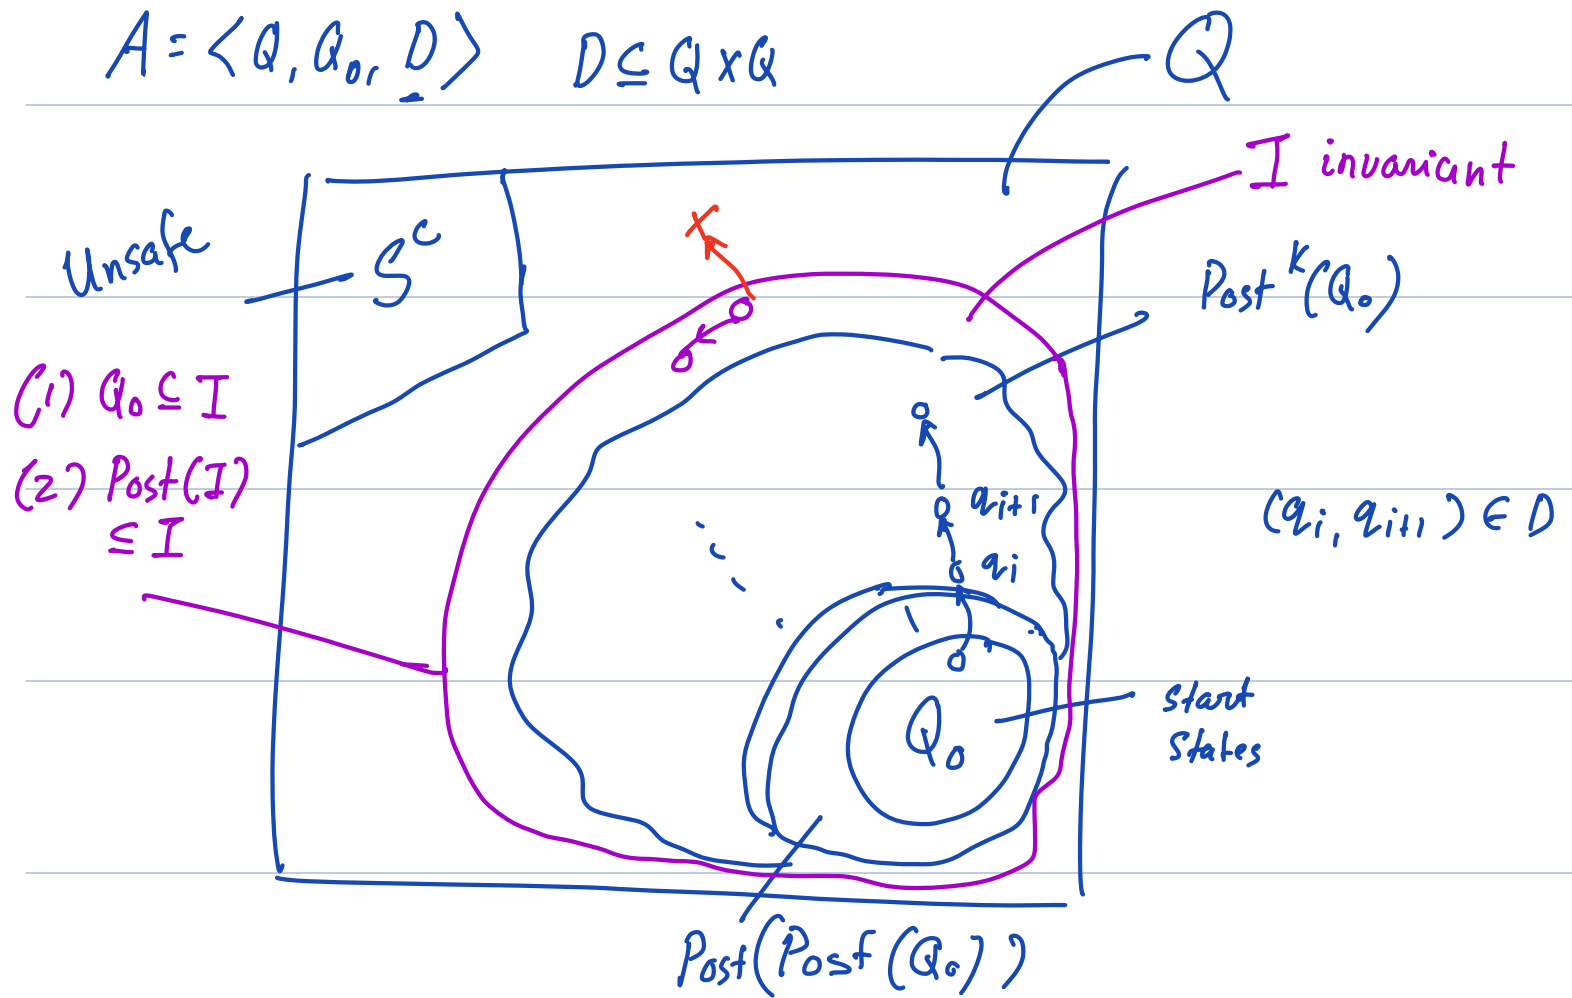 A = ⟨Q, Q₀, D⟩ D ⊆ Q × Q
Q
I invariant
Unsafe
Sᶜ
Postᴷ(Q₀)
(1) Q₀ ⊆ I
(2) Post(I)
⊆ I
qᵢ₊₁
(qᵢ, qᵢ₊₁) ∈ D
qᵢ
Q₀
start
states
Post(Post(Q₀))